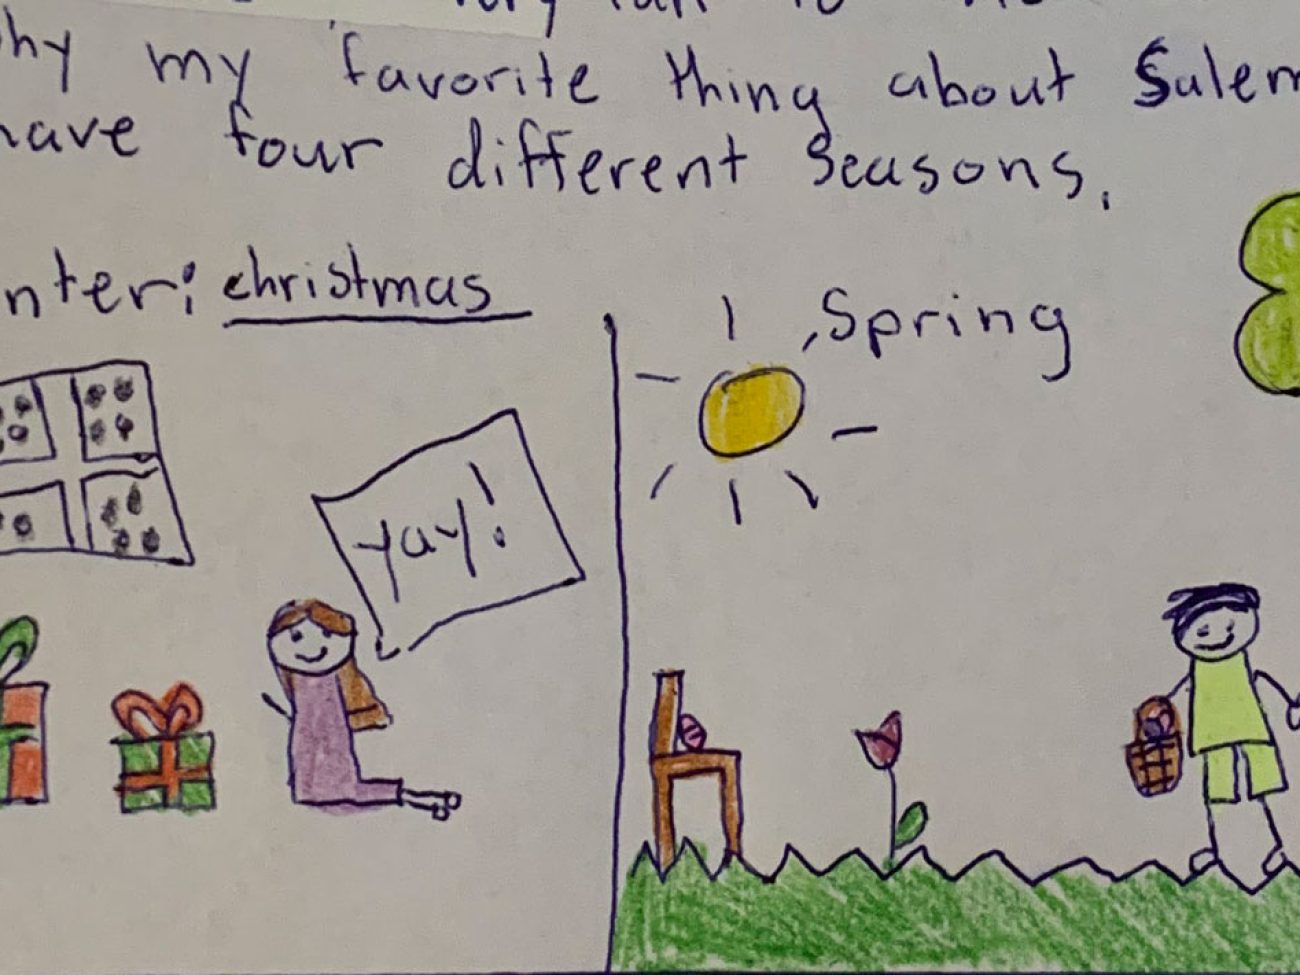 my favorite thing about Salem
have four different seasons.
christmas
Spring
yay!